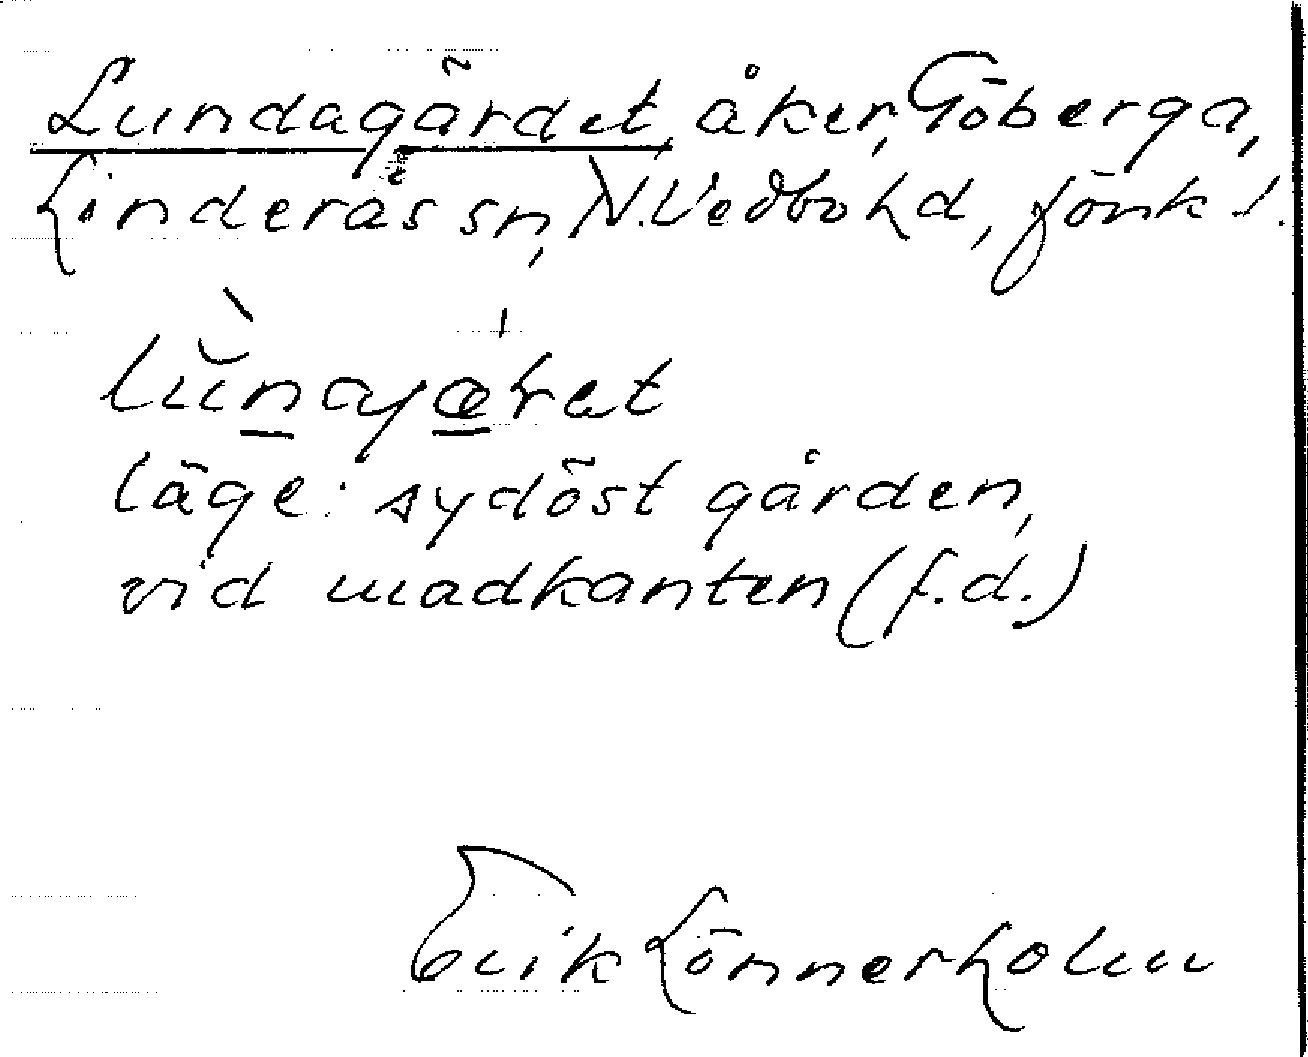 Lundagärdet, åker, Göberga,
Linderås sn, N. Vedbo hd, Jönk l.
lùnayæret
läge: sydöst gården,
vid madkanten (f.d.)
Erik Lönnerholm